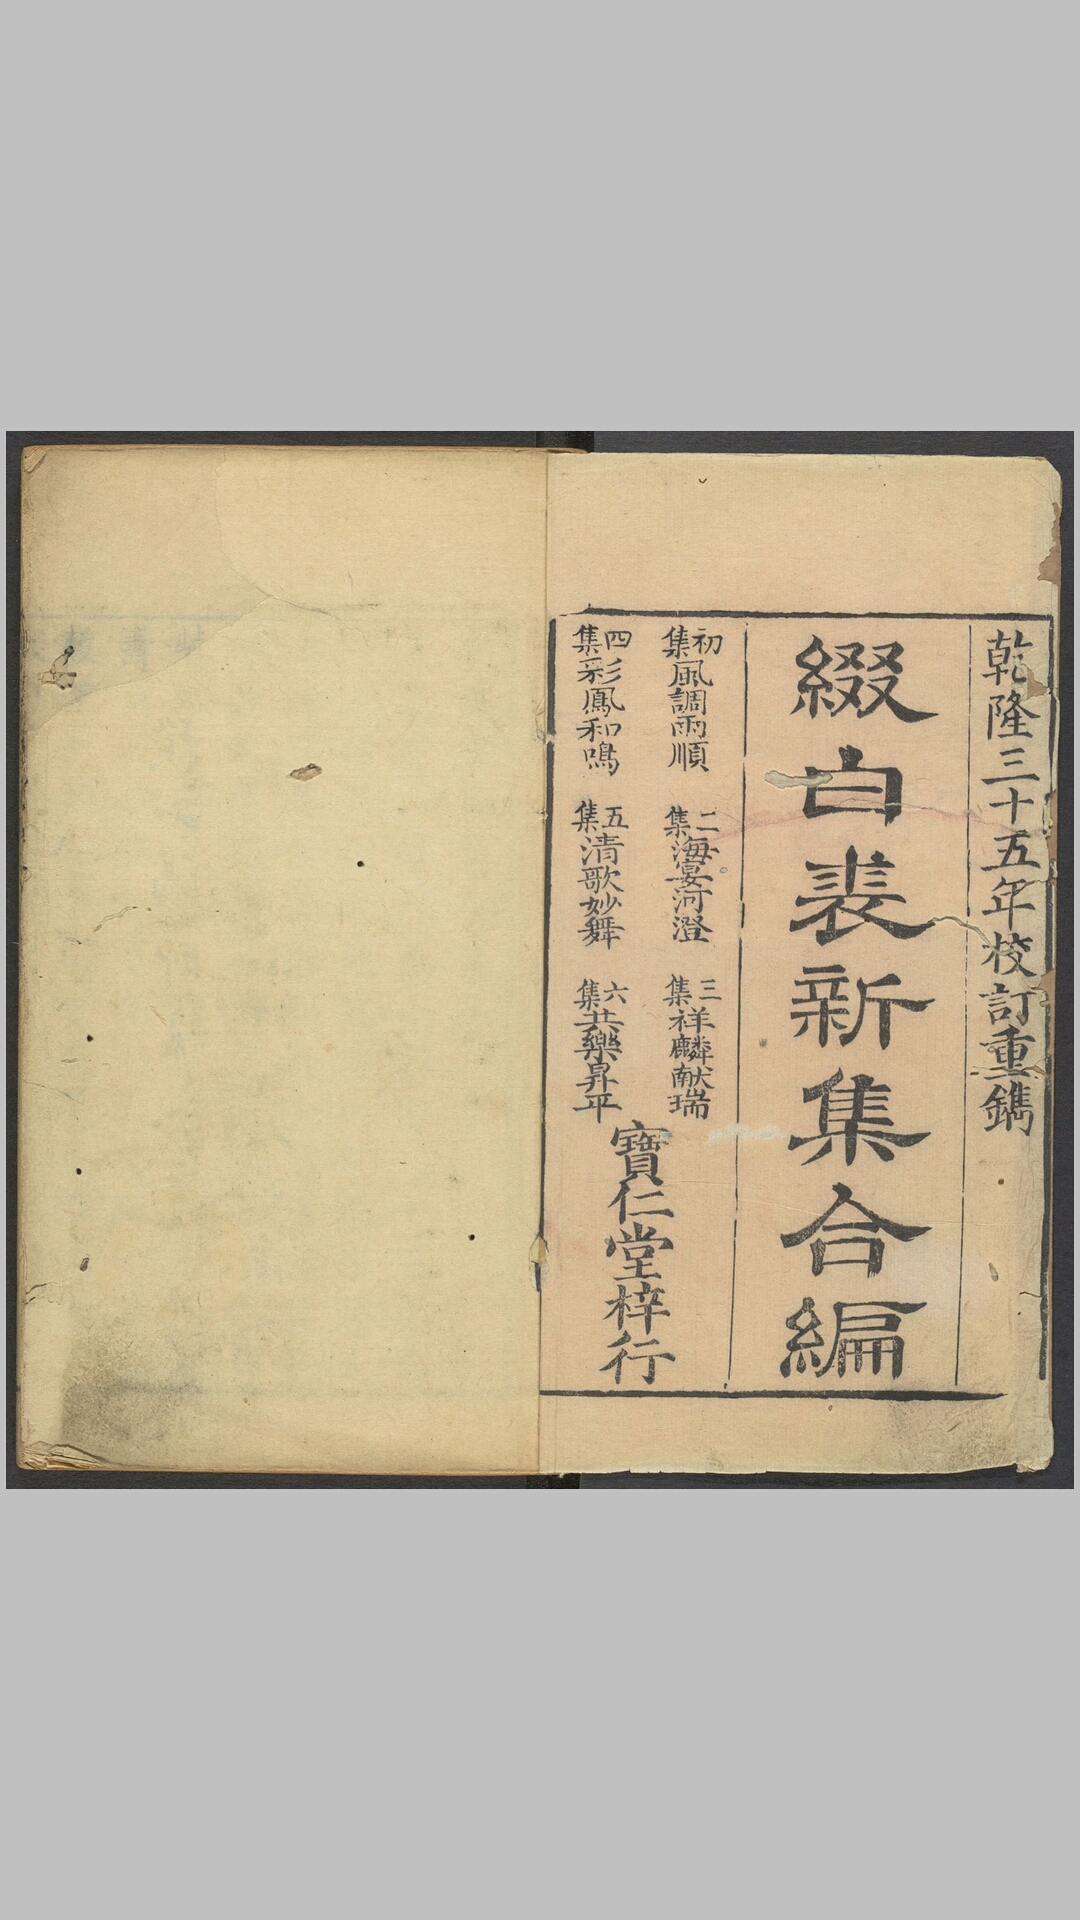 乾隆三十五年校訂重鐫
綴白裘新集合編
初集風調雨順 二集海宴河澄 三集祥麟献瑞
四集彩鳳和鳴 五集清歌妙舞 六集共樂昇平
寶仁堂梓行